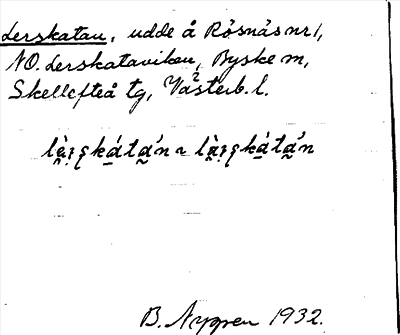 Lerskatan, udde å Rösnäs nr 1,
NO. Lerskataviken, Byske sn,
Skellefteå tg, Västerb. l.
B. Nygren 1932.